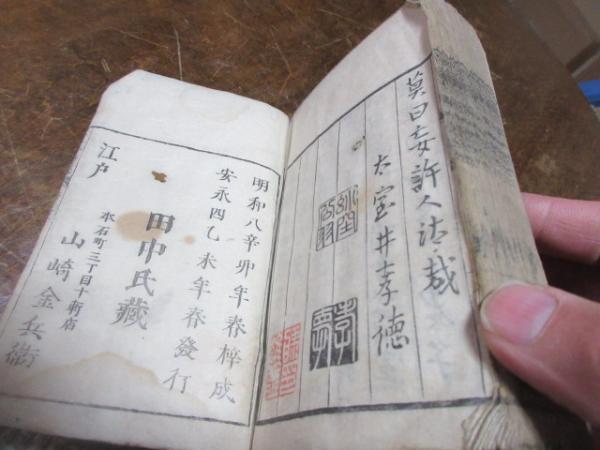 莫曰妄許人法哉
太室井孝徳
明和八辛卯年春梓成
安永四乙未年春發行
田中氏藏
江戸
本石町三丁目十軒店
山崎金兵衛